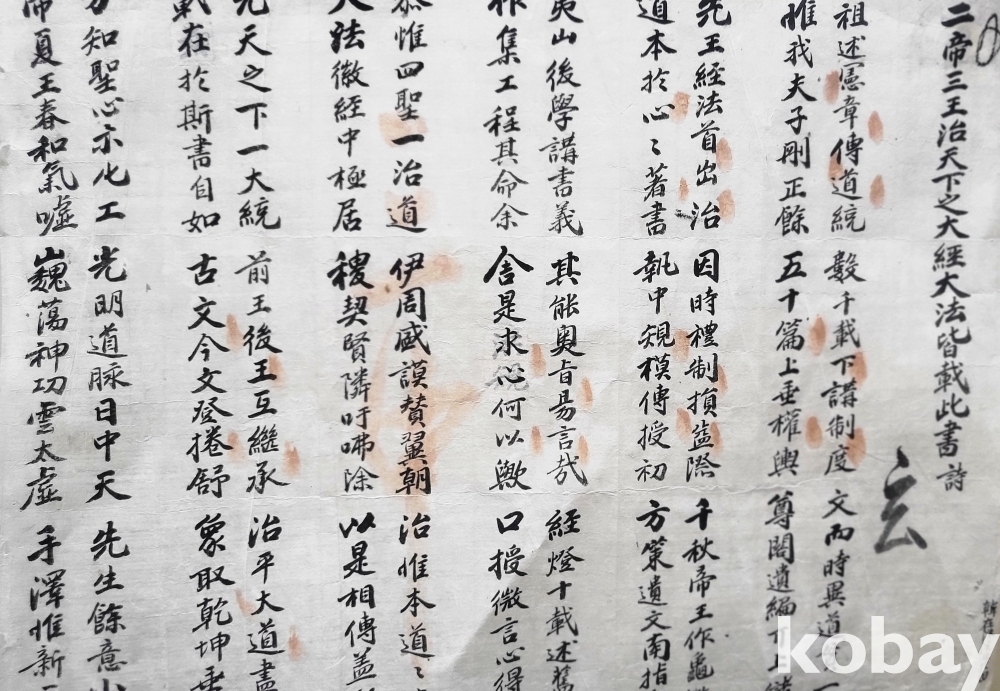 二帝三王治天下之大經大法皆載此書 詩
玄
祖述憲章傳道統 數千載下講制度 文而時異道
惟我夫子刪正餘 五十篇上垂權輿 尊閣遺編丌上
先王經法首出治 因時禮制損益際 千秋帝王作龜
道本於心〻著書 執中規模傳授初 方策遺文南指
夷山後學講書義 其能奧旨昜言哉 經燈十載述
作集工程其命余 舍是求心何以歟 口授微言心得
恭惟四聖一治道 伊周盛謨贊翼朝 治惟本道〻
大法徽經中極居 稷契賢隣吁咈除 以是相傳盖
光天之下一大統 前王後王互繼承 治平大道盡
載在於斯書自如 古文今文登捲舒 象取乾坤垂
方知聖心亦化工 光明道脉日中天 先生餘意
帝夏王春和氣噓 巍蕩神功雲太虛 手澤惟新
kobay